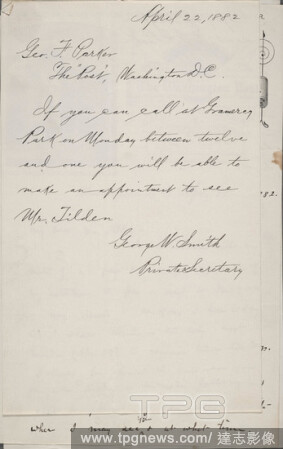 April 22, 1882
Geo. F. Parker
The "Post", Washington D.C.
If you can call at Gramercy
Park on Monday between twelve
and one you will be able to
make an appointment to see
Mr. Tilden
George W. Smith
Private Secretary
82.
TPG
when I may at what
www.tpgnews.com/達志影像